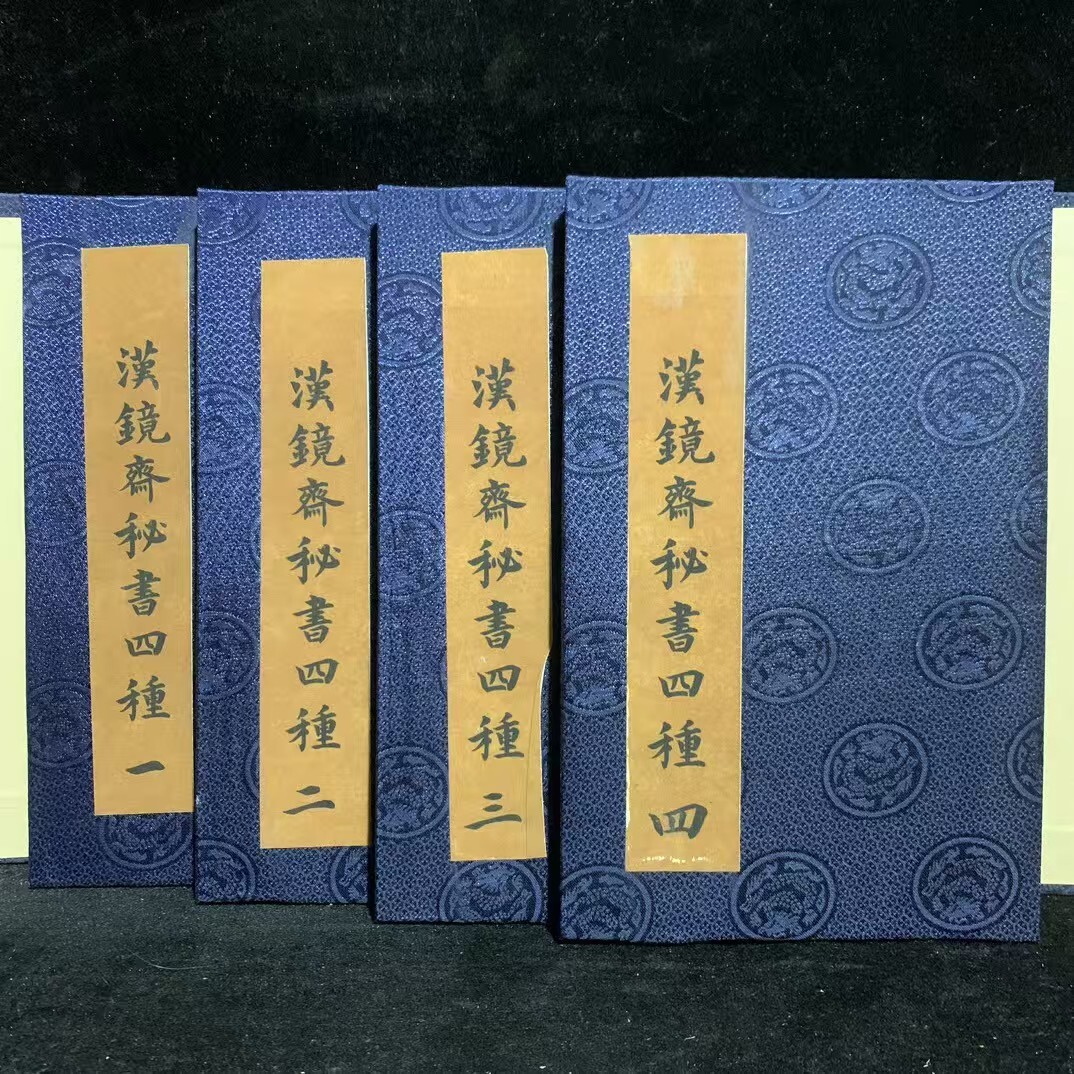 漢鏡齋秘書四種 一
漢鏡齋秘書四種 二
漢鏡齋秘書四種 三
漢鏡齋秘書四種 四